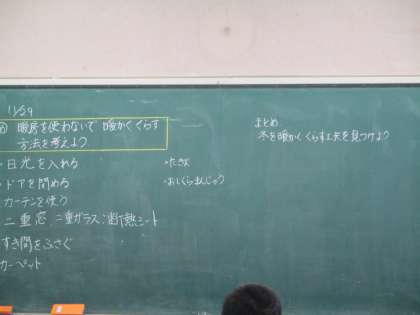 11/29
め 暖房を使わないで 暖かくくらす
方法を考えよう
・日光を入れる
・ドアを閉める
カーテンを使う
二重窓 二重ガラス 断熱シート
すき間をふさぐ
カーペット
・たき火
・おしくらまんじゅう
まとめ
冬を暖かくくらす工夫を見つけよう